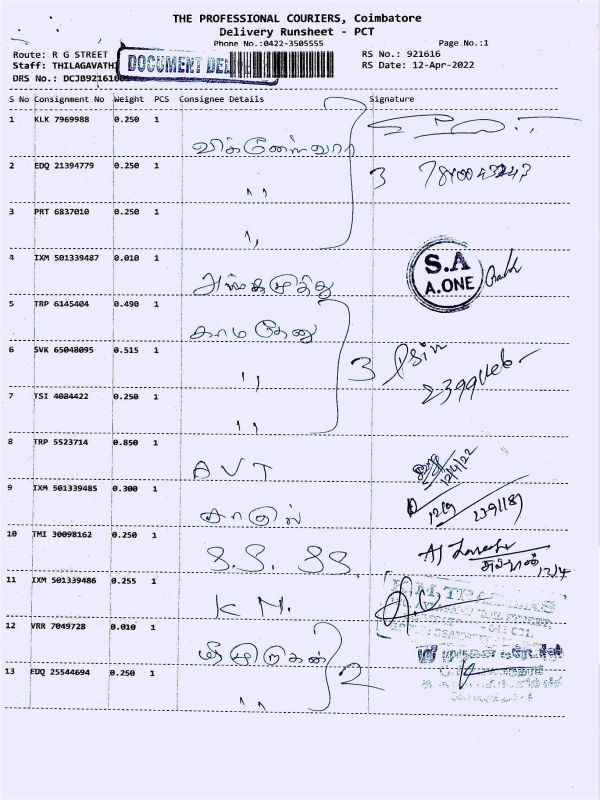 THE PROFESSIONAL COURIERS, Coimbatore
Delivery Runsheet - PCT
Phone No.:0422-3505555
Page No.:1
Route: R G STREET
RS No.: 921616
Staff: THILAGAVATHI
DOCUMENT DEL
RS Date: 12-Apr-2022
DRS No.: DCJB921616
S No Consignment No Weight PCS Consignee Details Signature
1 KLK 7969988 0.250 1
2 EDQ 21394779 0.250 1
,, 3
3 PRT 6837010 0.250 1
,,
4 IXM 501339487 0.010 1
S.A
A.ONE
5 TRP 6145404 0.490 1
காமதேனு
6 SVK 65048095 0.515 1
,, 3
7 TSI 4084422 0.250 1
,,
8 TRP 5523714 0.850 1
AVT
12/4/22
9 IXM 501339485 0.300 1
10 TMI 30098162 0.250 1
S.S. SS.
12/4
11 IXM 501339486 0.255 1
K M.
12 VRR 7049728 0.010 1
13 EDQ 25544694 0.250 1
,, 2